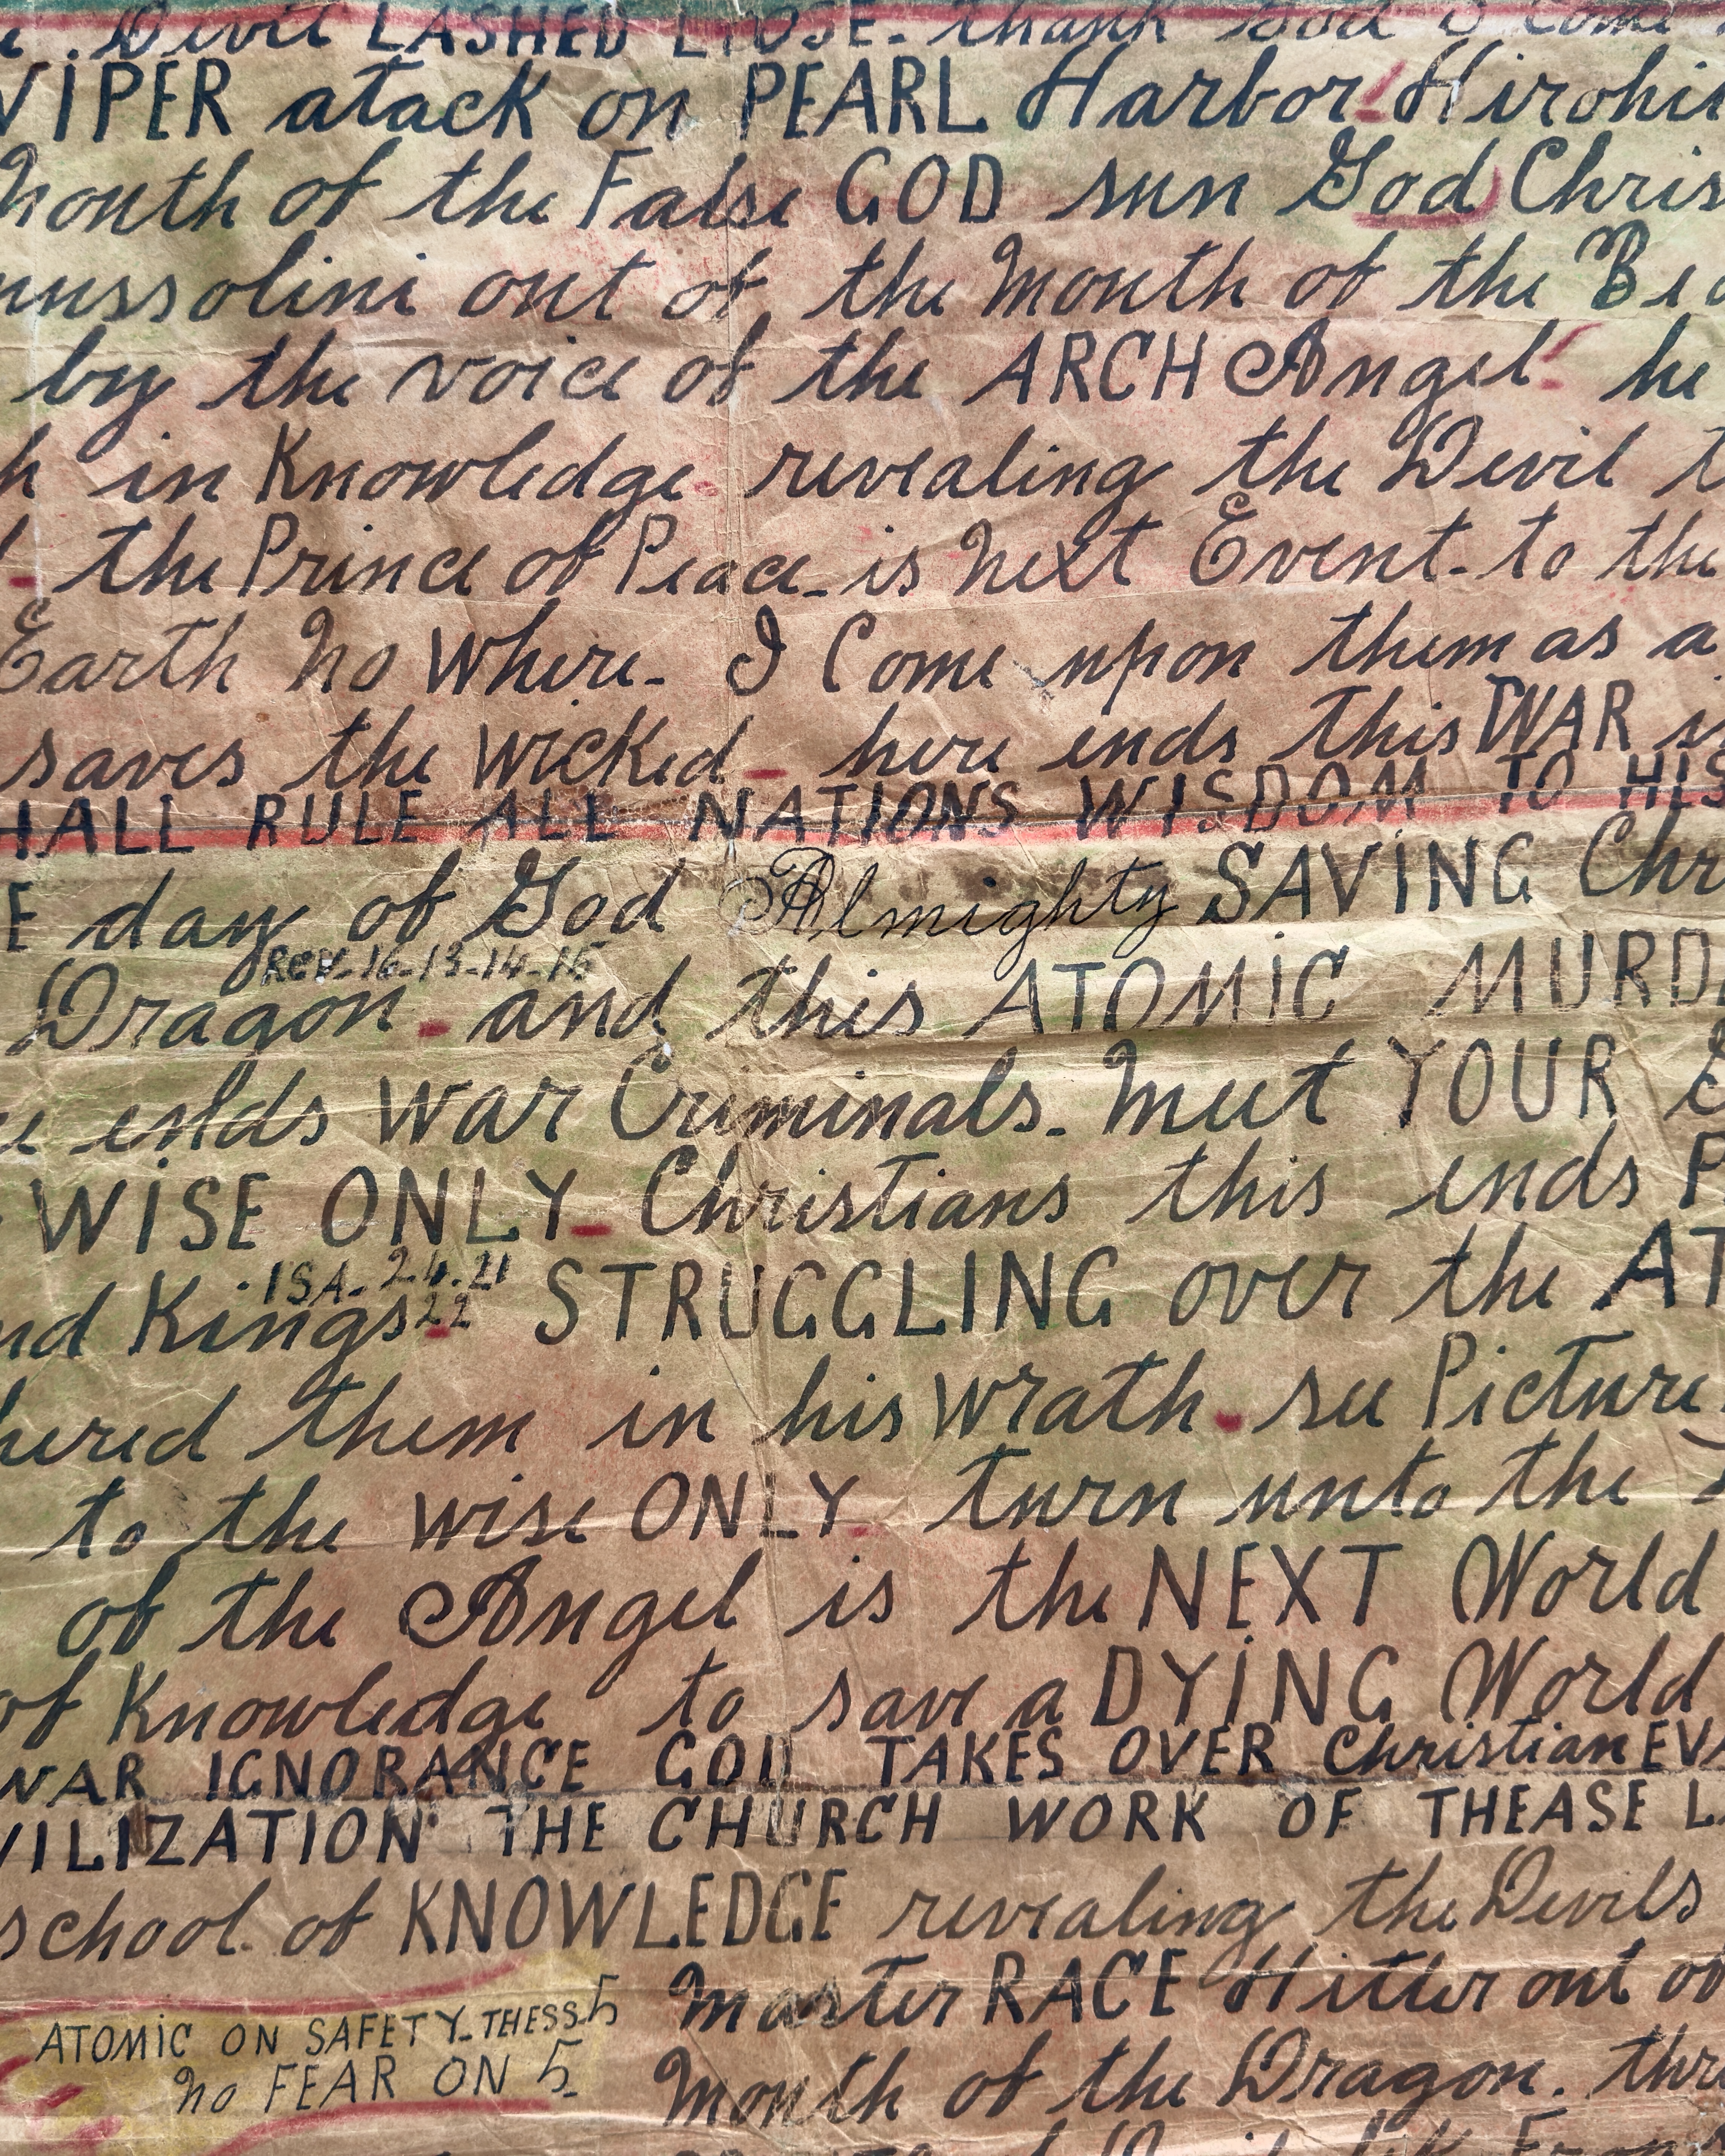 . Devil LASHED LOOSE - thank God I come
VIPER atack on PEARL Harbor Hirohi
mouth of the False GOD sun God Chris
mussolini out of the mouth of the Bea
by the voice of the ARCH Angel he
h in Knowledge revealing the Devil t
- the Prince of Peace - is next Event - to the
Earth no where - I Come upon them as a
saves the wicked - here ends this WAR i
HALL RULE ALL NATIONS WISDOM TO HIS
E day of God Almighty SAVING Chr
REV-16-13-14-15
Dragon - and this ATOMIC MURD
e ends war Criminals - meet YOUR
WISE ONLY - Christians this ends P
ISA - 24-21
nd Kings 22 STRUGGLING over the AT
hered them in his wrath. see Picture
to the wise ONLY. turn unto the
of the Angel is the NEXT World
of Knowledge to save a DYING World
WAR IGNORANCE GOD TAKES OVER Christian EVA
VILIZATION THE CHURCH WORK OF THEASE L
school of KNOWLEDGE revealing the Devils
master RACE Hitler out of
ATOMIC ON SAFETY - THESS 5
no FEAR ON 5 -
mouth of the Dragon. thr